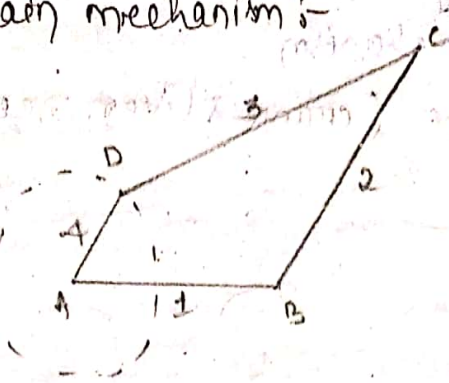 mechanism :-
C
3
D
2
4
A
1
B